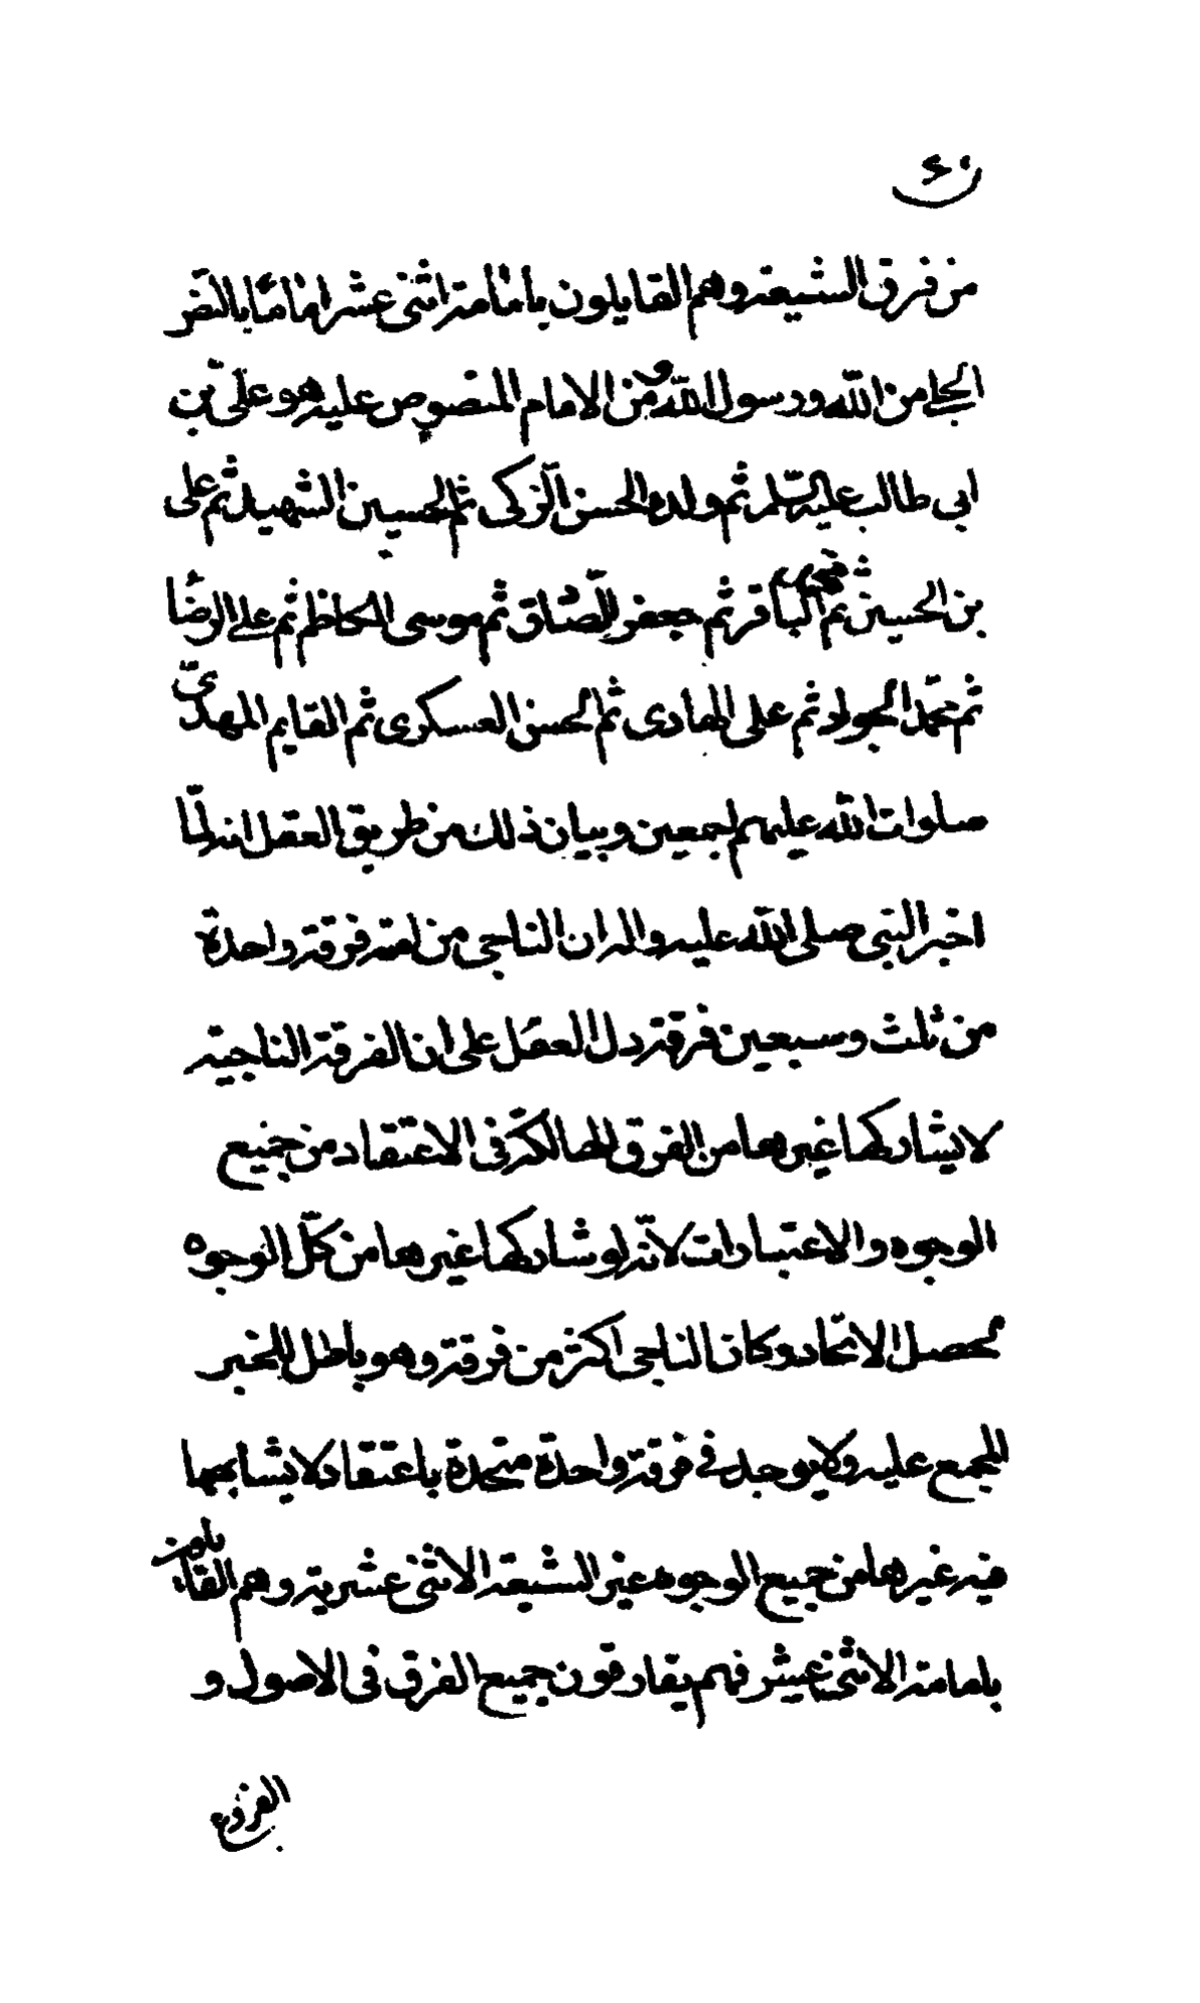 من فرق الشيعة وهم القايلون بامامة اثنى عشر اماما بالنص
الجلي من الله ورسول الله ومن الامام المنصوص عليه هو علي بن
ابى طالب عليه السلم ثم ولده الحسن الزكى ثم الحسين الشهيد ثم على
بن الحسين ثم محمد الباقر ثم جعفر الصادق ثم موسى الكاظم ثم علي الرضا
ثم محمد الجواد ثم على الهادى ثم الحسن العسكرى ثم القايم المهدي
صلوات الله عليهم اجمعين وبيان ذلك من طريق العقل انه لما
اخبر النبى صلى الله عليه واله ان الناجى من امته فرقة واحدة
من ثلث وسبعين فرقة دل العقل على ان الفرقة الناجية
لا يشاركها غيرها من الفرق الهالكة فى الاعتقاد من جميع
الوجوه والاعتبارات لانه لو شاركها غيرها من كل الوجوه
لحصل الاتحاد وكان الناجى اكثر من فرقة وهو باطل للخبر
المجمع عليه ولا يوجد في فرقة واحدة متحدة باعتقاد لا يشابهها
فيه غيرها من جميع الوجوه غير الشيعة الاثنى عشرية وهم القايلون
بامامة الاثنى عشر فهم يفارقون جميع الفرق فى الاصول و
الفروع